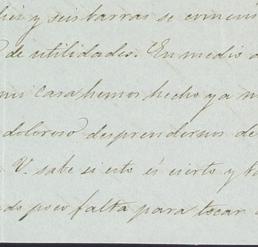 diez y seis barras se
de utilidades. En medio
mi casa hemos hecho ya
doloroso desprendernos de
V. sabe si esto és cierto y
poco falta para tocar